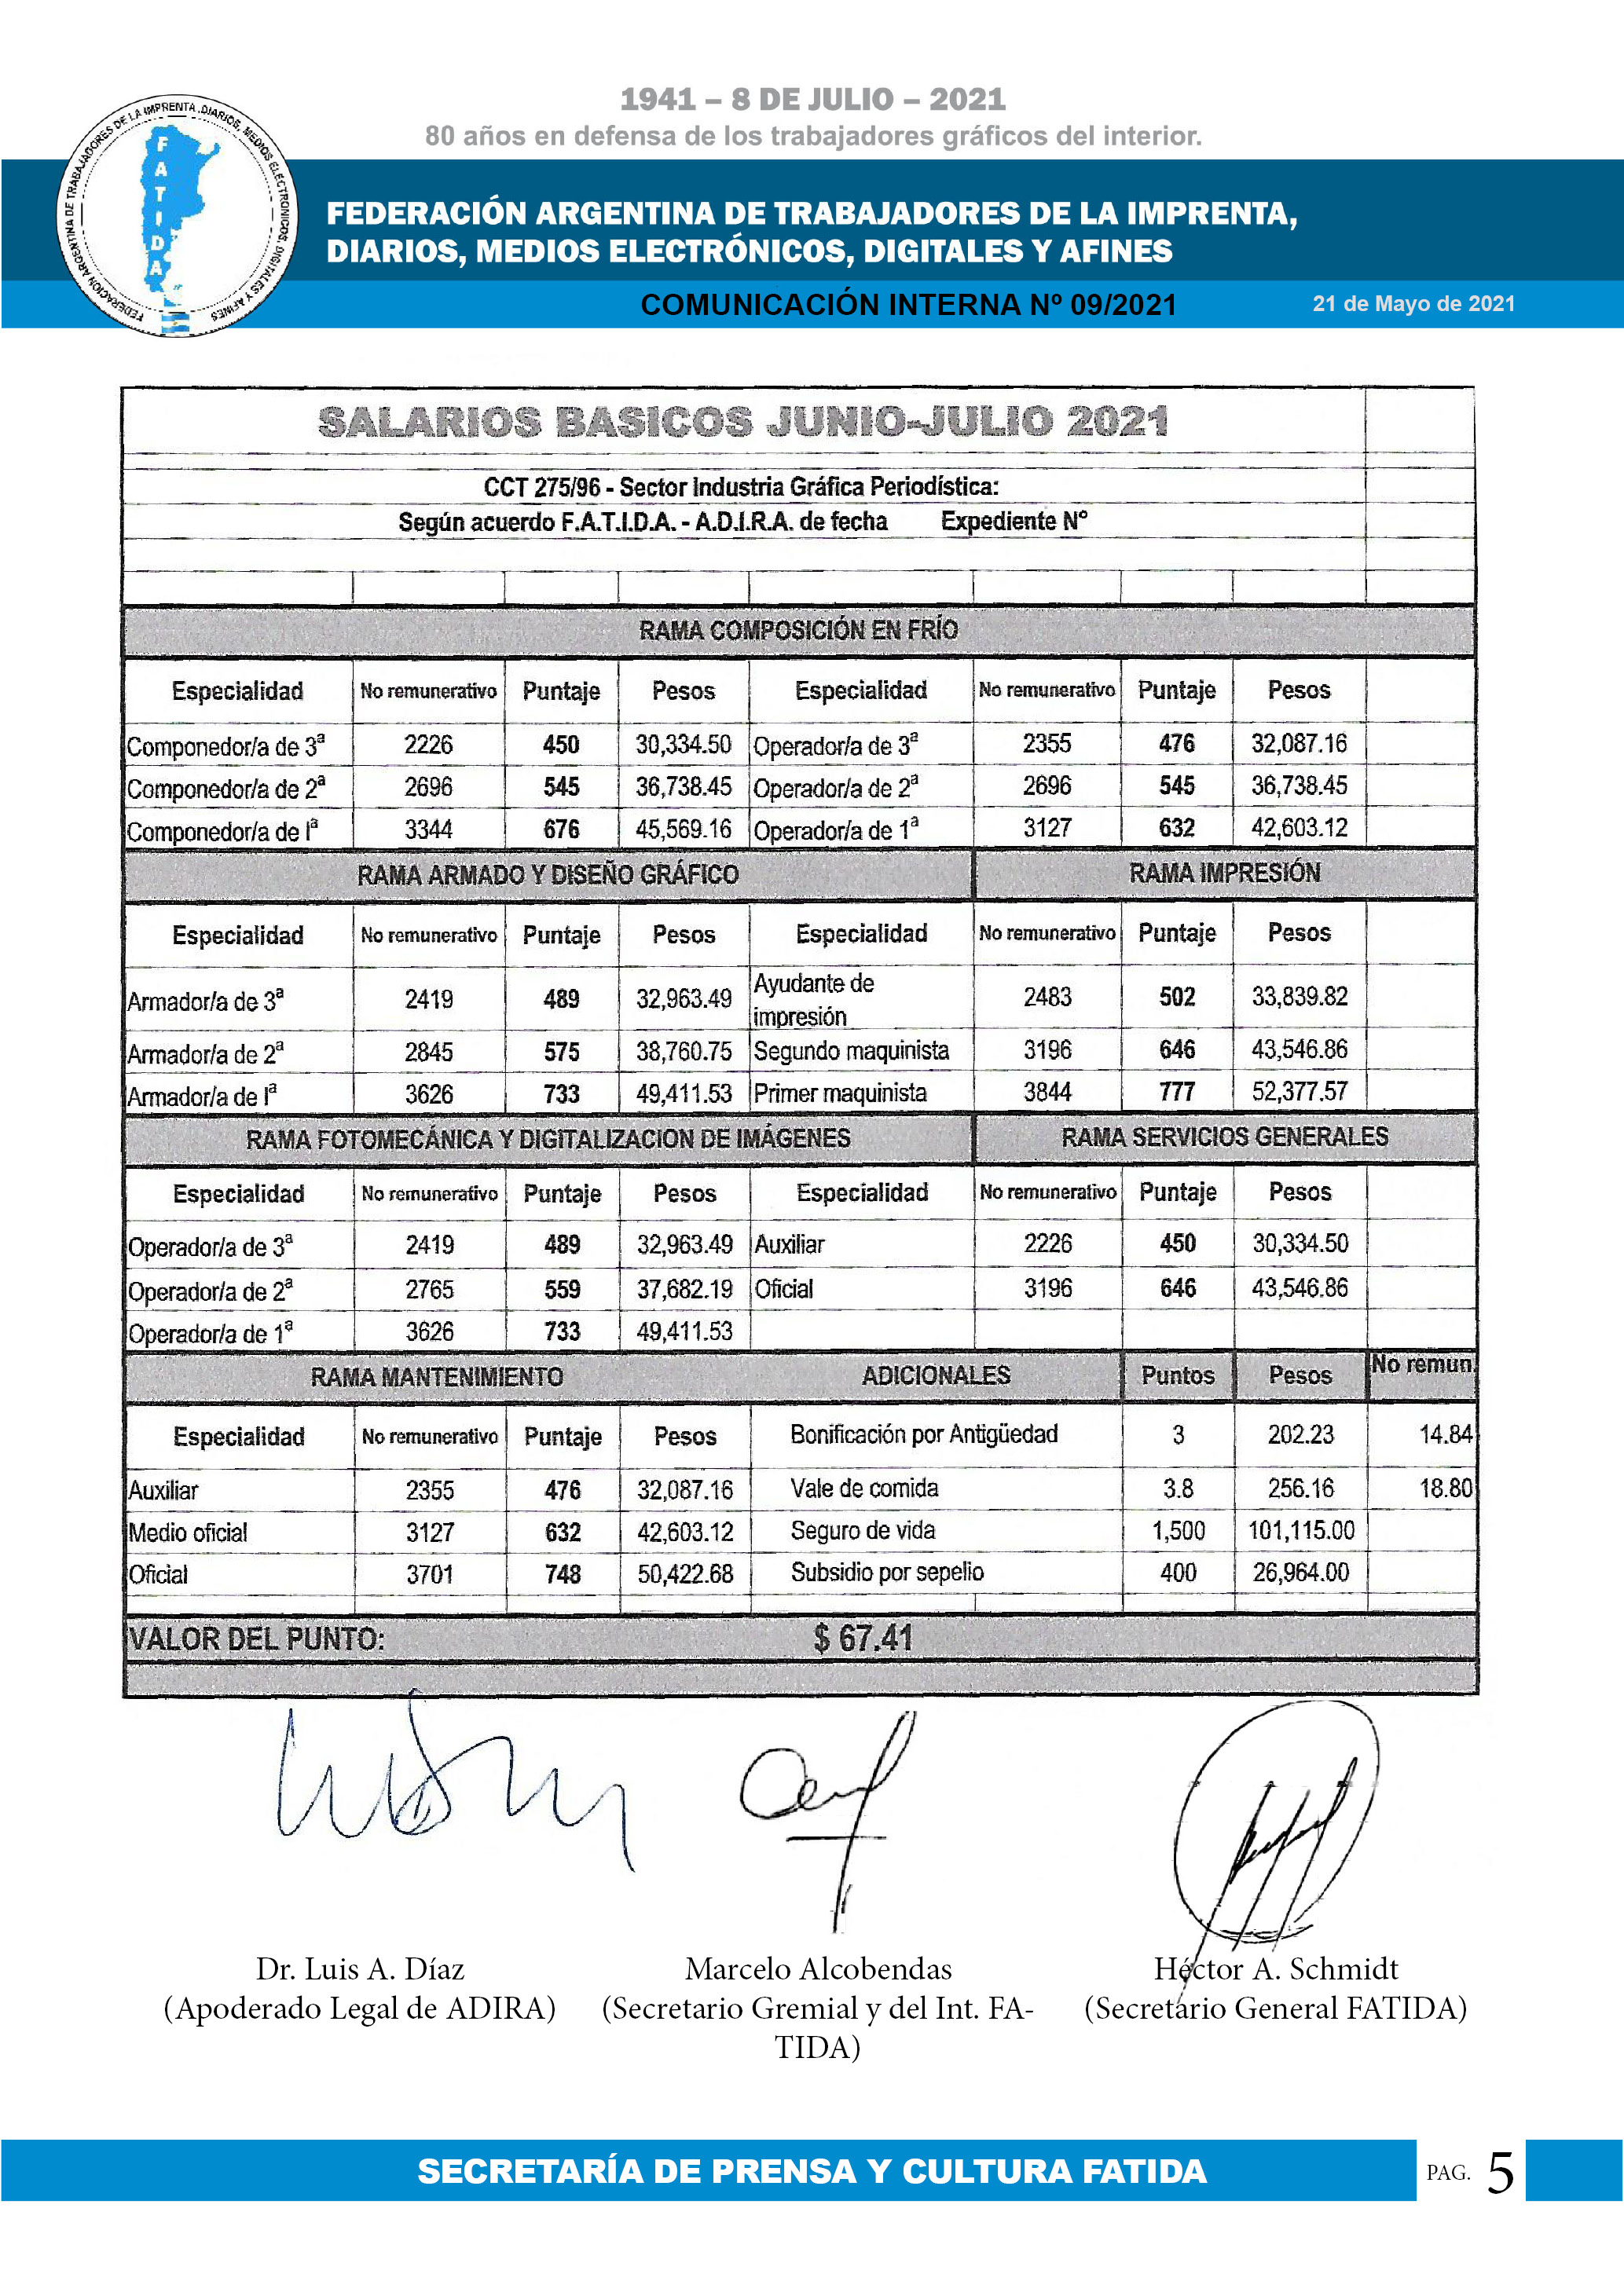 1941 – 8 DE JULIO – 2021
80 años en defensa de los trabajadores gráficos del interior.
FEDERACIÓN ARGENTINA DE TRABAJADORES DE LA IMPRENTA, DIARIOS, MEDIOS ELECTRONICOS, DIGITALES Y AFINES
FATIDA
FEDERACIÓN ARGENTINA DE TRABAJADORES DE LA IMPRENTA,
DIARIOS, MEDIOS ELECTRÓNICOS, DIGITALES Y AFINES
COMUNICACIÓN INTERNA Nº 09/2021 21 de Mayo de 2021
SALARIOS BASICOS JUNIO-JULIO 2021
CCT 275/96 - Sector Industria Gráfica Periodística:
Según acuerdo F.A.T.I.D.A. - A.D.I.R.A. de fecha Expediente N°
RAMA COMPOSICIÓN EN FRÍO
Especialidad No remunerativo Puntaje Pesos Especialidad No remunerativo Puntaje Pesos
Componedor/a de 3ª 2226 450 30,334.50 Operador/a de 3ª 2355 476 32,087.16
Componedor/a de 2ª 2696 545 36,738.45 Operador/a de 2ª 2696 545 36,738.45
Componedor/a de lª 3344 676 45,569.16 Operador/a de 1ª 3127 632 42,603.12
RAMA ARMADO Y DISEÑO GRÁFICO RAMA IMPRESIÓN
Especialidad No remunerativo Puntaje Pesos Especialidad No remunerativo Puntaje Pesos
Armador/a de 3ª 2419 489 32,963.49 Ayudante de impresión 2483 502 33,839.82
Armador/a de 2ª 2845 575 38,760.75 Segundo maquinista 3196 646 43,546.86
Armador/a de lª 3626 733 49,411.53 Primer maquinista 3844 777 52,377.57
RAMA FOTOMECÁNICA Y DIGITALIZACION DE IMÁGENES RAMA SERVICIOS GENERALES
Especialidad No remunerativo Puntaje Pesos Especialidad No remunerativo Puntaje Pesos
Operador/a de 3ª 2419 489 32,963.49 Auxiliar 2226 450 30,334.50
Operador/a de 2ª 2765 559 37,682.19 Oficial 3196 646 43,546.86
Operador/a de 1ª 3626 733 49,411.53
RAMA MANTENIMIENTO ADICIONALES Puntos Pesos No remun.
Especialidad No remunerativo Puntaje Pesos Bonificación por Antigüedad 3 202.23 14.84
Auxiliar 2355 476 32,087.16 Vale de comida 3.8 256.16 18.80
Medio oficial 3127 632 42,603.12 Seguro de vida 1,500 101,115.00
Oficial 3701 748 50,422.68 Subsidio por sepelio 400 26,964.00
VALOR DEL PUNTO: $ 67.41
Dr. Luis A. Díaz Marcelo Alcobendas Héctor A. Schmidt
(Apoderado Legal de ADIRA) (Secretario Gremial y del Int. FA- (Secretario General FATIDA)
TIDA)
SECRETARÍA DE PRENSA Y CULTURA FATIDA PAG. 5